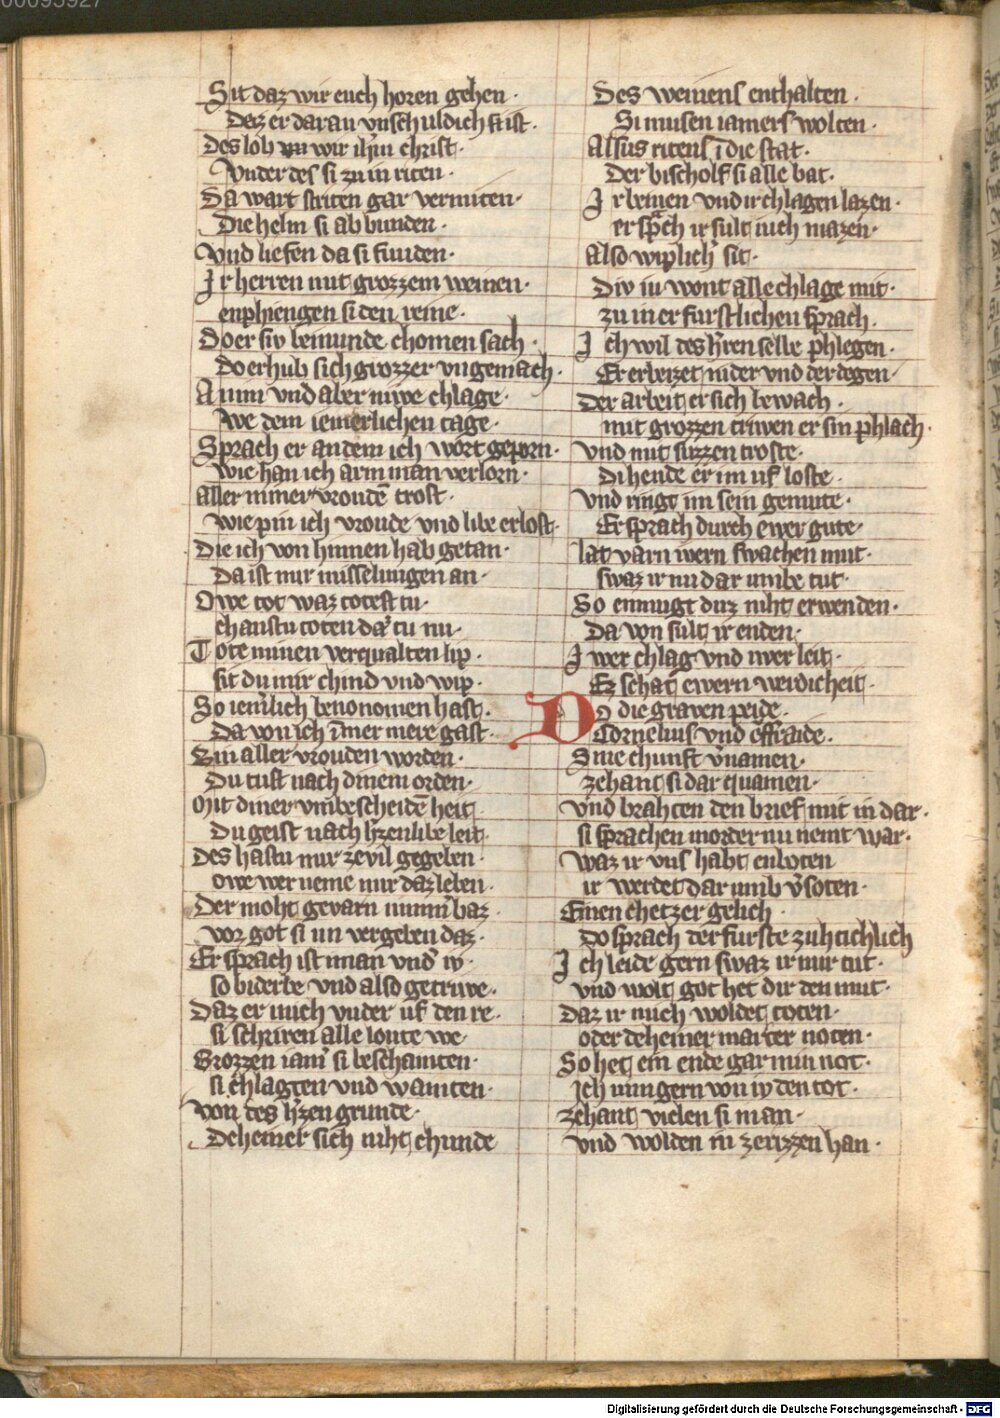 00095927
Sit daz wir euch horen gehen ·
Daz er daran vnschuldich ist ·
Des lob wir ihm christ ·
Vnder des si zu in riten ·
Da wart striten gar vermiten ·
Die helm si ab bunden ·
Vnd liefen da si funden ·
Ir herren mit grozzem weinen ·
enphiengen si den reine ·
Do er siv beimunde chomen sach ·
Do erhub sich grozzer vngemach ·
A nim vnd aber niwe chlage ·
We dem iemerlichen tage ·
Sprach er an dem ich wart geporn ·
Wie han ich arm man verlorn ·
Aller miner vroudē trost ·
wie pin ich vroude vnd libe erlost ·
Die ich von hinnen hab getan ·
Da ist mir misselungen an ·
Owe tot waz totest tu ·
chanstu toten da tu nu ·
Tote minen verqualten lip ·
sit du mir chind vnd wip ·
So iemlich benonomen hast ·
Da von ich īmer mere gast ·
Bin aller vrouden worden ·
Du tust nach dinem orden ·
Mit diner vmbescheidē heit
Du geist nach hzenlibe leit ·
Des hastu mir ze vil gegeben ·
owe wer neme mir daz leben ·
Der moht gevarn nimm baz
vor got si im vergeben daz ·
Er sprach ist iman vnd iv ·
so biderbe vnd also getriwe ·
Daz er mich vnder uf den re ·
si schriren alle loute we ·
Grozzen iam si beschainten ·
si chlagten vnd wainten ·
von des hzen grunde ·
Deheiner sich niht chunde
Des weinens enthalten ·
Si musen iamers wolten ·
Alsus ritens ī die stat ·
Der bischolf si alle bat ·
Ir weinen vnd ir chlagen lazen ·
er spch ir sult iuch mazen ·
Also wiplich sit ·
Div iu wont alle chlage mit ·
zu in er furstlichen sprach ·
Ich wil des hren selbe phlegen ·
Er erbeizet nider vnd der degen ·
Der arbeit er sich bewach ·
mit grozzen triwen er sin phlach ·
Vnd mit suzzen troste ·
Di hende er im uf loste ·
Vnd ringt im sein gemute ·
Er sprach durch ewer gute ·
lat varn iwern swachen mut ·
swaz ir nu dar umbe tut ·
So enmugt duz niht erwenden ·
Da von sult ir enden ·
Iwer chlag vnd iwer leit ·
Ez schat ewern werdicheit ·
Do die graven peide ·
Cornelius vnd effraide ·
Sine chunft vnamen ·
zehant si dar quamen ·
vnd brahten den brief mit in dar ·
si sprachen morder nu nemt war ·
waz ir vns habt enboten
ir werdet dar umb vsoten ·
Einen chetzer gelich ·
Do sprach der furste zuhtichlich
Ich leide gern swaz ir mir tut ·
vnd wolt got het dir den mut ·
Daz ir mich woldet toten ·
oder deheiner marter noten ·
So het ein ende gar min not ·
Ich nim gern von iv den tot ·
zehant vielen si in an ·
vnd wolden in zerizzen han ·
Digitalisierung gefördert durch die Deutsche Forschungsgemeinschaft - DFG